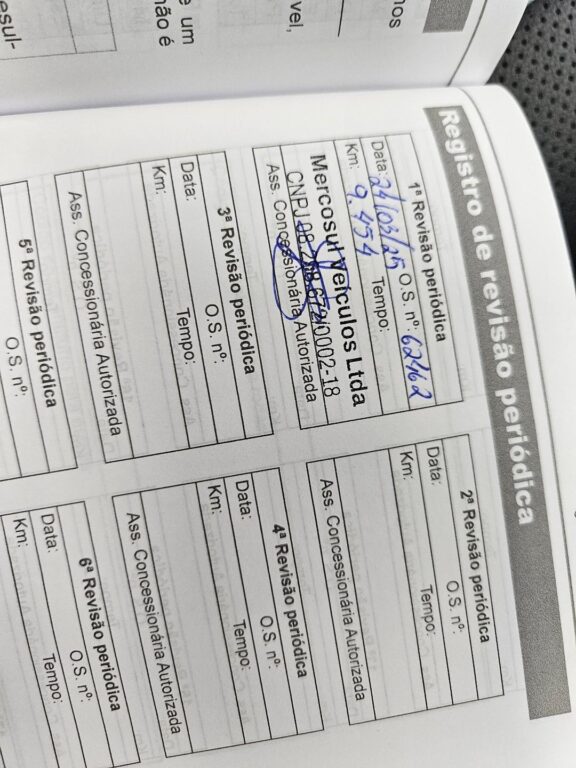 nos
vel,
e um
não é
esul-
Registro de revisão periódica
1ª Revisão periódica
Data: 24/03/25 O.S. nº: 62462
Km: 9.454 Tempo:
Mercosul Veículos Ltda
CNPJ 08.268.672/0002-18
Ass. Concessionária Autorizada
2ª Revisão periódica
Data: O.S. nº:
Km: Tempo:
Ass. Concessionária Autorizada
3ª Revisão periódica
Data: O.S. nº:
Km: Tempo:
Ass. Concessionária Autorizada
4ª Revisão periódica
Data: O.S. nº:
Km: Tempo:
Ass. Concessionária Autorizada
5ª Revisão periódica
O.S. nº:
6ª Revisão periódica
Data: O.S. nº:
Km: Tempo: